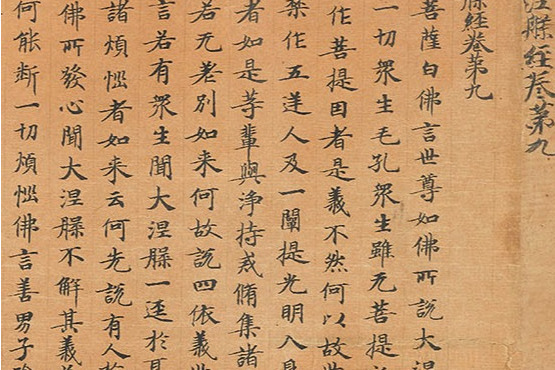 涅槃經卷第九
槃經卷第九
菩薩白佛言世尊如佛所說大涅
一切衆生毛孔衆生雖无菩提
作菩提因者是義不然何以故世
禁作五逆人及一闡提光明入身
者如是等輩與淨持戒脩集諸
若无差別如来何故說四依義世
言若有衆生聞大涅槃一逕於耳
諸煩惱者如来云何先說有人於
佛所發心聞大涅槃不解其義
何能斷一切煩惱佛言善男子